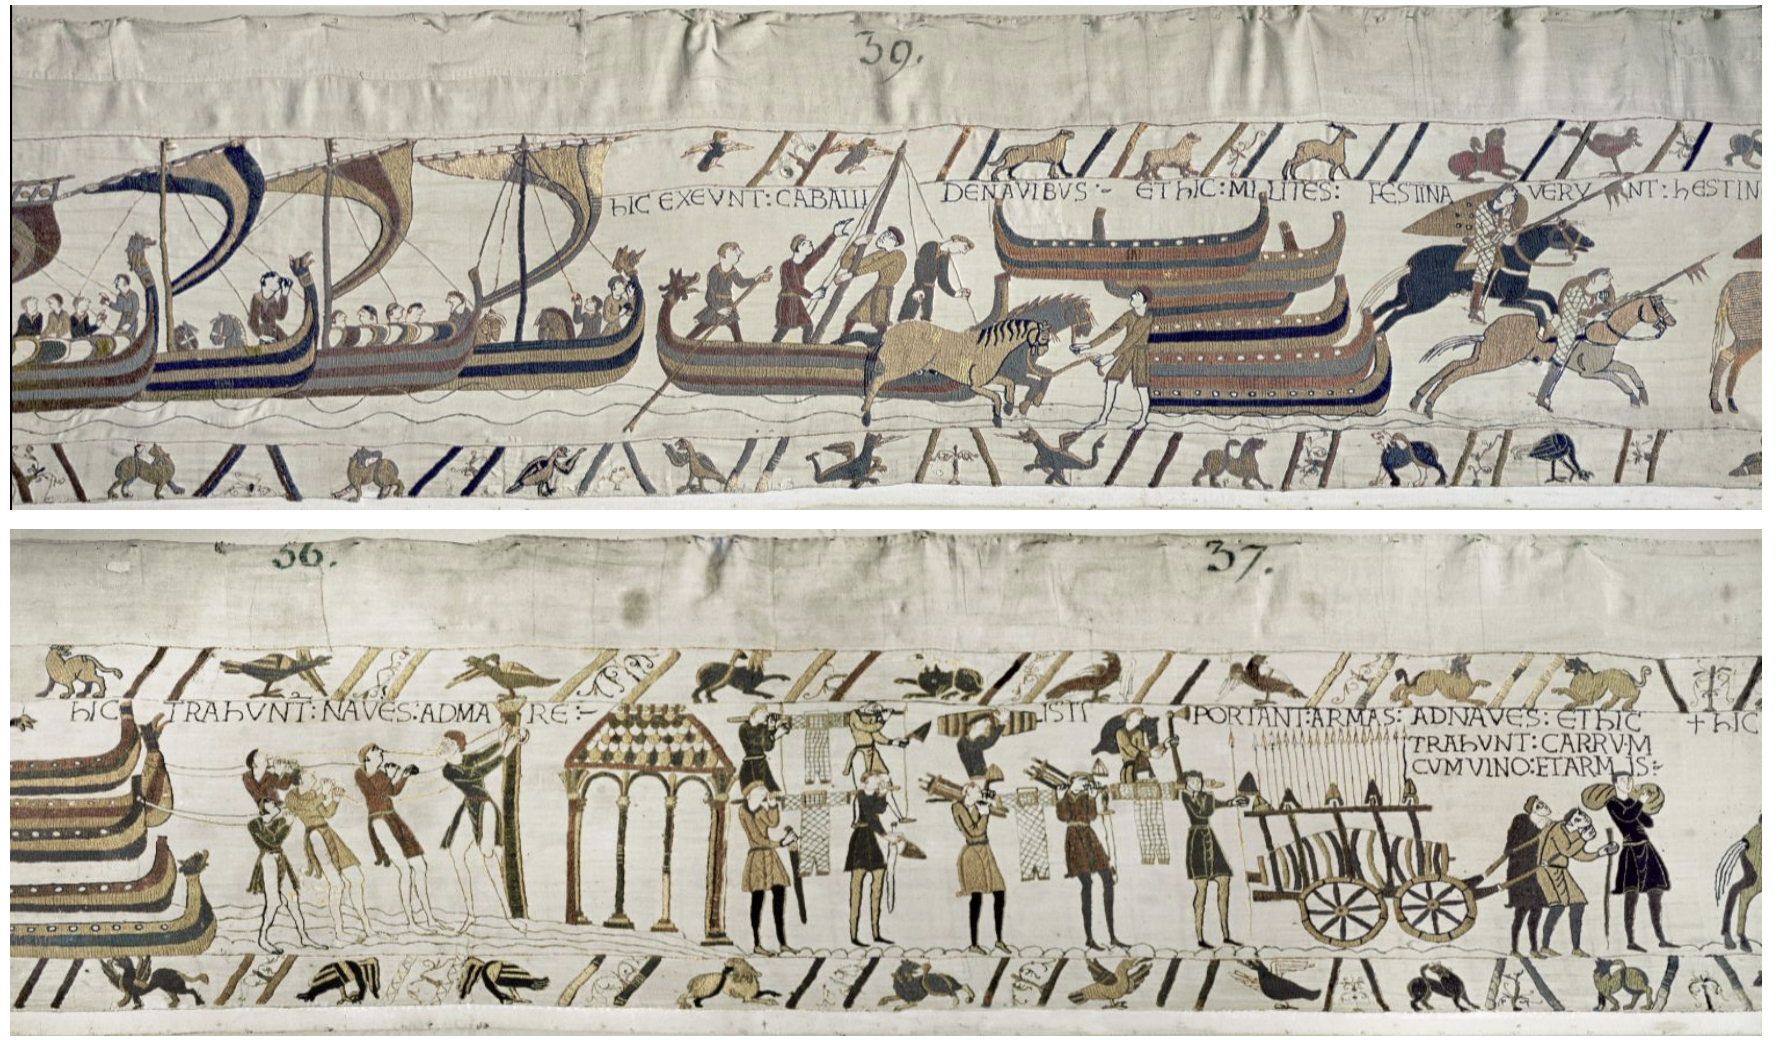 39.
hIC EXEVNT:CABALLI DENAVIBVS:- ET hIC:MILITES: FESTINA VERVNT:hESTIN
36.
37.
hIC TRAhVNT:NAVES:ADMARE:- ISTI PORTANT:ARMAS: ADNAVES: ET hIC
TRAhVNT: CARRVM
CVMVINO:ETARMIS:-
+ hIC